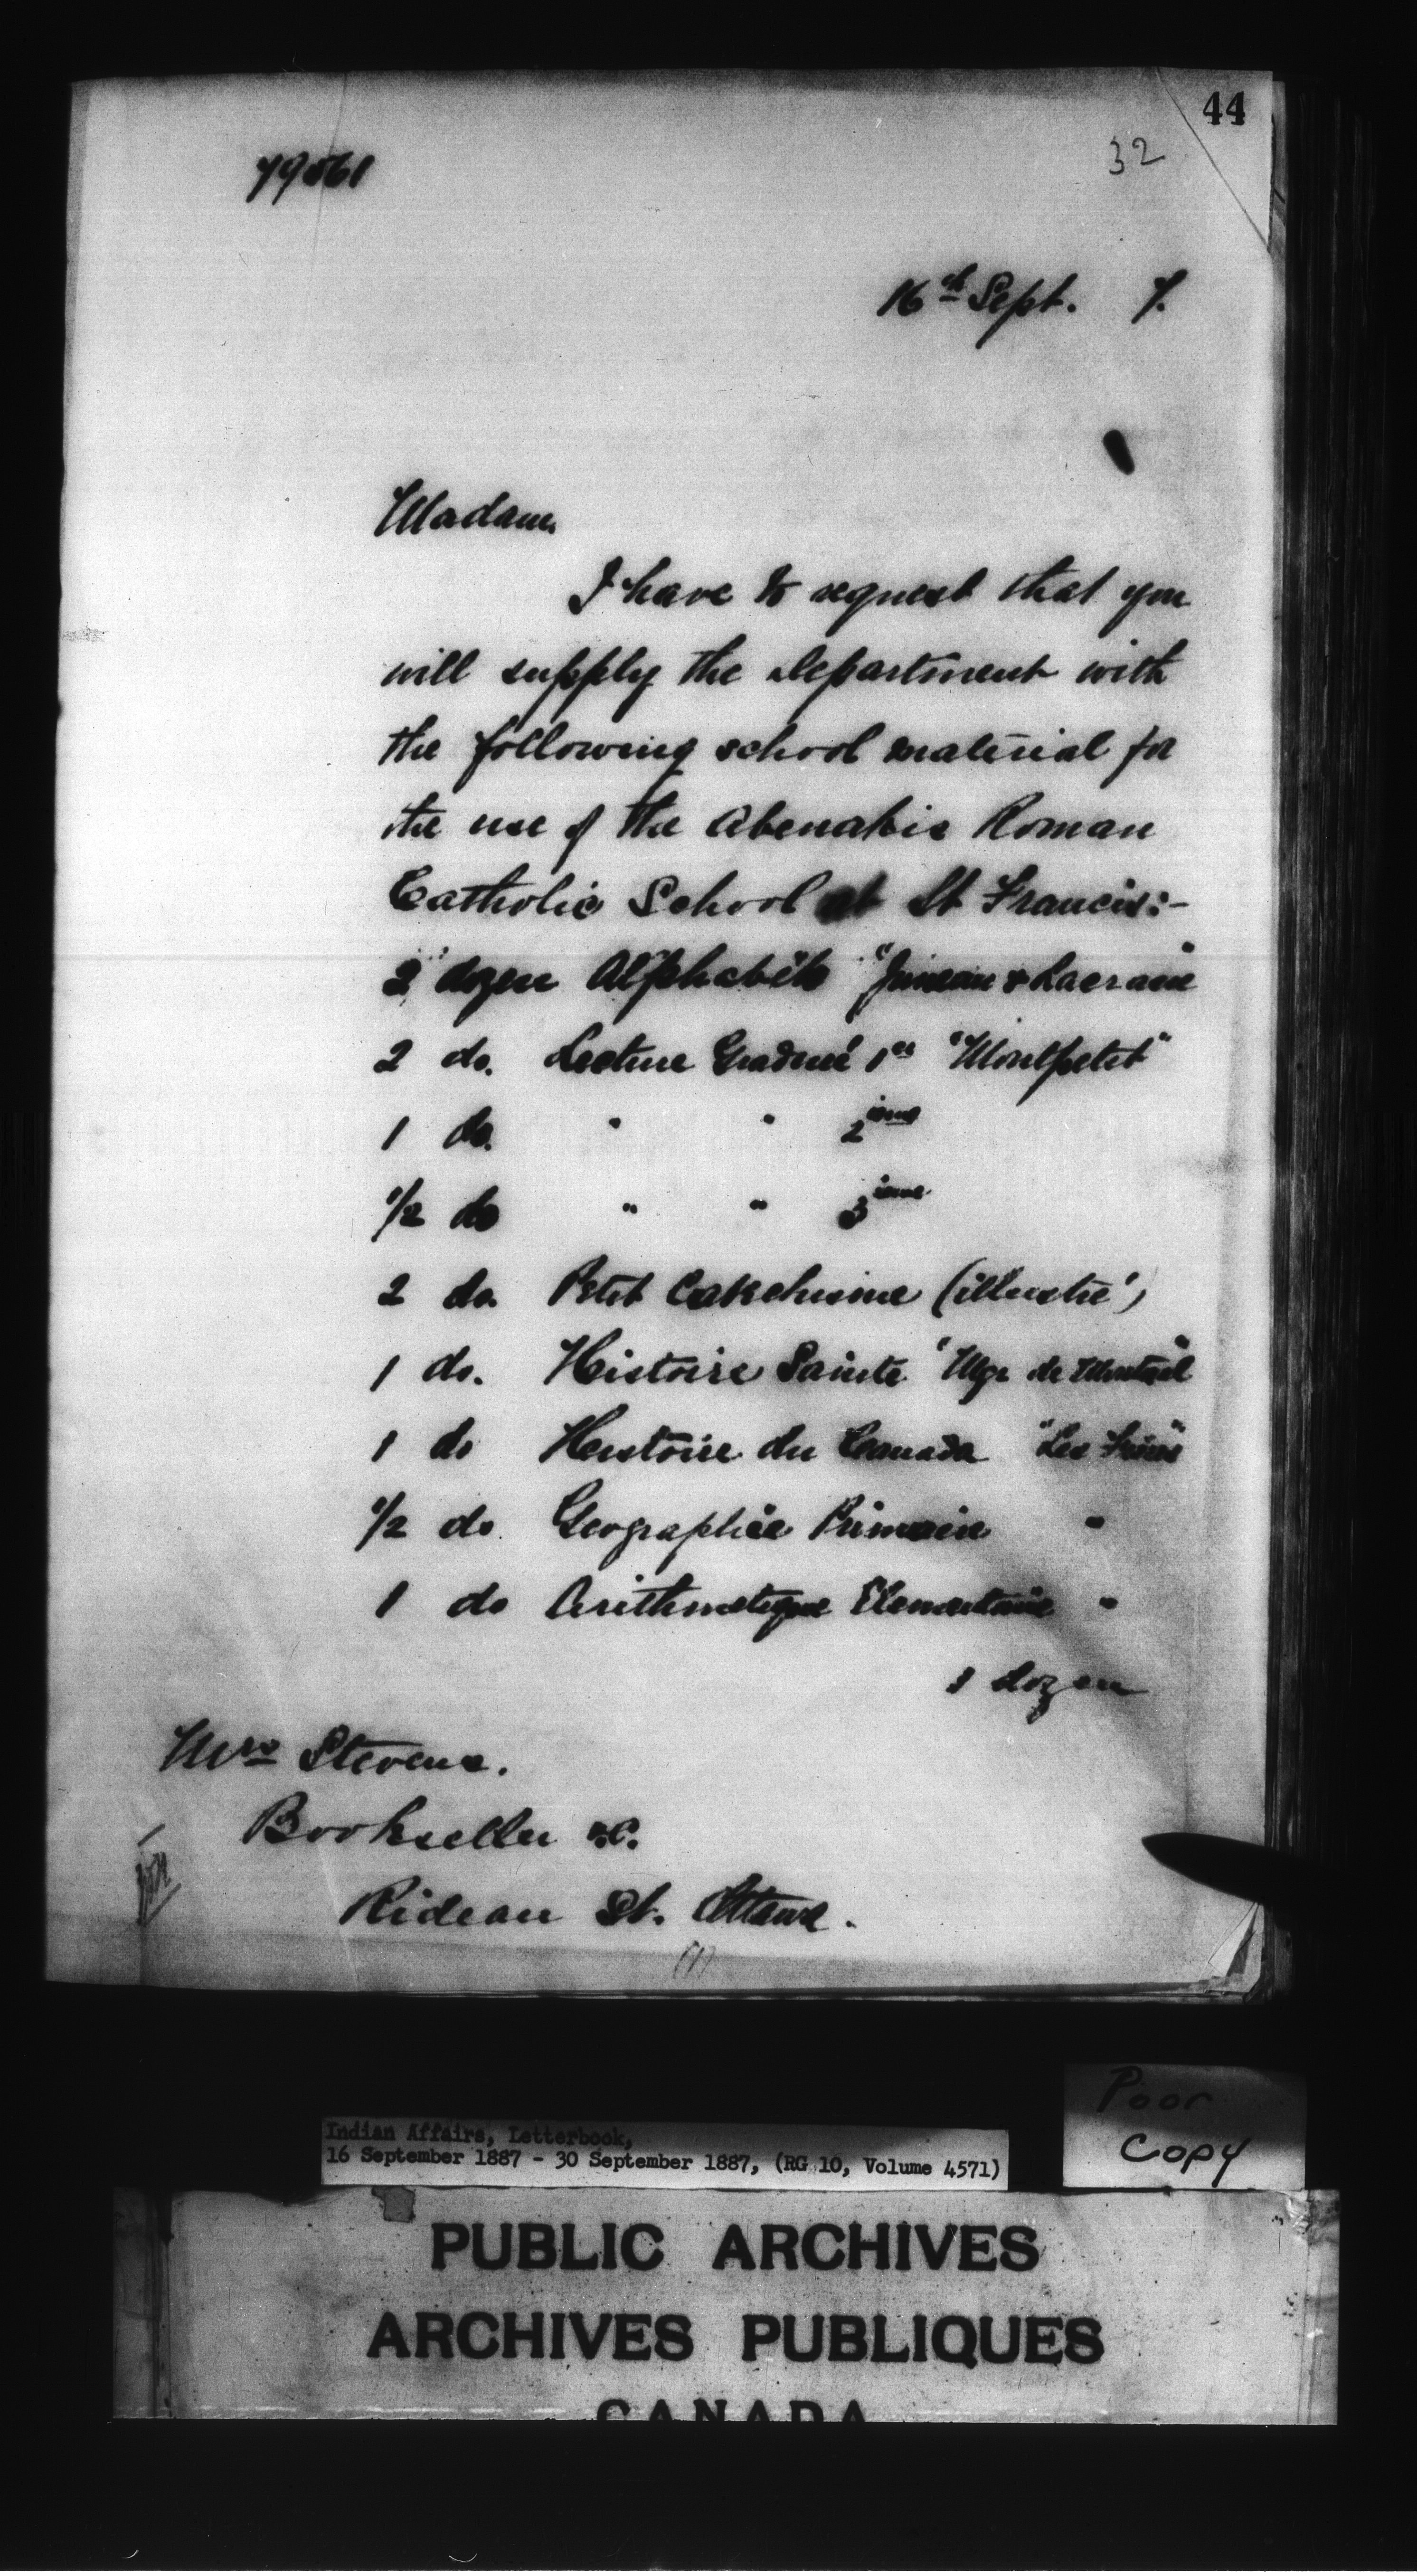 44
32
79561
16th Sept. 7.
Madam,
I have to request that you
will supply the Department with
the following school material for
the use of the Abenakis Roman
Catholic School at St Francis:-
2 dozen Alphabets "Juneau & Lacraine"
2 do. Lecture Gradué 1er "Montpetit"
1 do. " " 2ieme
1/2 do " " 3ieme
2 do. Petit Catechisme (illustré)
1 do. Histoire Sainte "Mgr de Montreal"
1 do Histoire du Canada "Les Frères"
1/2 do. Geographie Primaire "
1 do Arithmetique Elementaire "
1 dozen
Mrs Stevens.
Bookseller &c.
Rideau St. Ottawa.
(1)
Poor
Copy
Indian Affairs, Letterbook,
16 September 1887 - 30 September 1887, (RG 10, Volume 4571)
PUBLIC ARCHIVES
ARCHIVES PUBLIQUES
CANADA